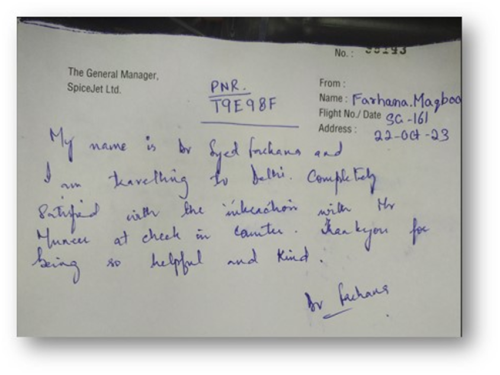 No.: 38193
The General Manager,
SpiceJet Ltd.
PNR.
T9E98F
From :
Name : Farhana. Maqboo
Flight No./ Date SG-161
Address : 22-Oct-23
My name is Dr Syed Farhana and
I am travelling to Delhi. Completely
Satified with the interaction with Mr
at check in Counter. Thankyou for
being so helpful and kind.
Dr Farhana